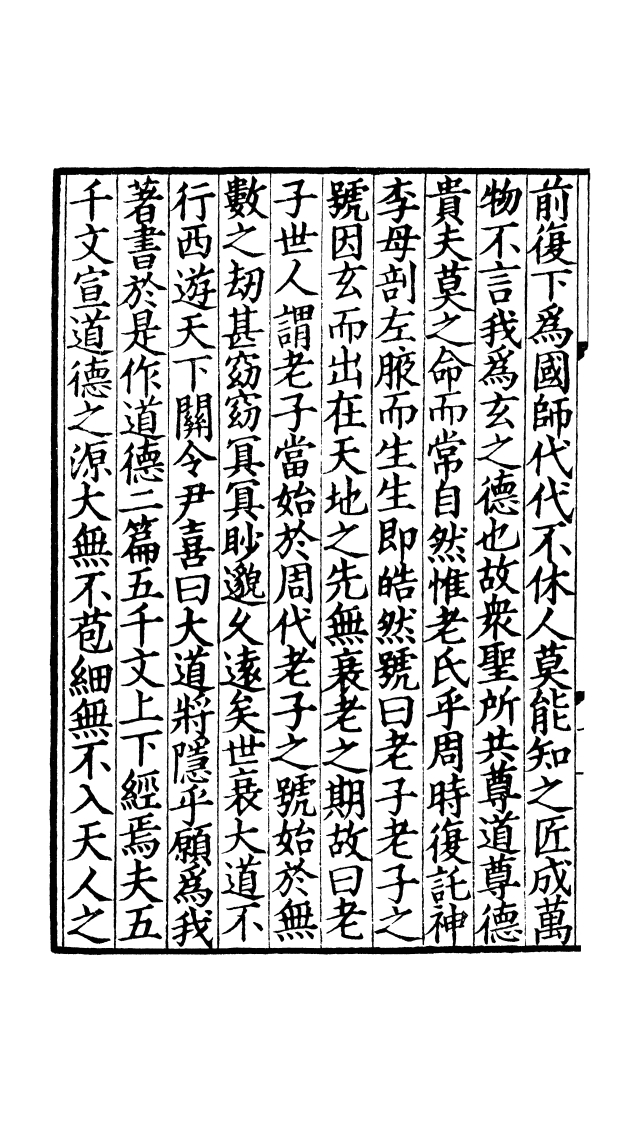 前復下爲國師代代不休人莫能知之匠成萬
物不言我爲玄之德也故衆聖所共尊道尊德
貴夫莫之命而常自然惟老氏乎周時復託神
李母剖左腋而生生即皓然號曰老子老子之
號因玄而出在天地之先無衰老之期故曰老
子世人謂老子當始於周代老子之號始於無
數之刧甚窈窈冥冥眇邈久遠矣世衰大道不
行西遊天下關令尹喜曰大道將隱乎願爲我
著書於是作道德二篇五千文上下經焉夫五
千文宣道德之源大無不苞細無不入天人之